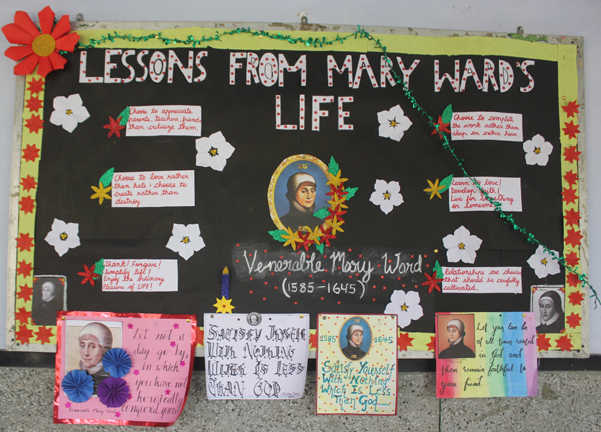 LESSONS FROM MARY WARD'S
LIFE
Choose to appreciate
parents, teachers, friends
than criticize them.
Choose to love rather
than hate; choose to
create rather than
destroy.
Thank! Forgive!
Simplify life!
Enjoy the ordinary
pleasures of LIFE!
Choose to complete
the work rather than
sleep an extra hour.
Learn to love!
Develop faith!
Live for something
or someone
Relationships are choices
that should be carefully
cultivated.
Venerable Mary Ward
(1585-1645)
Let not a
day go by,
in which
you have not
Venerable Mary Ward
SATISFY THYSELF
WITH NOTHING
WHICH IS LESS
THAN GOD
1585 1645
Satisfy Yourself
With Nothing
Which Is Less
Then God....
Let your love be
at all times rooted
in God and
then remain faithful to
your friend.